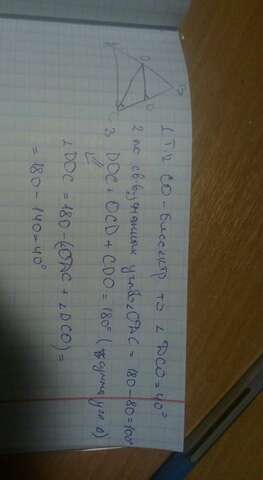 1 Т.к CD - биссектр, то ∠ DCO = 40°
2 по св-ву смежных углов ∠ ODC = 180 - 80 = 100°
3 DOC + OCD + CDO = 180° ( сумма угл Δ)
∠DOC = 180 - (ODC + ∠DCO) =
= 180 - 140 = 40°